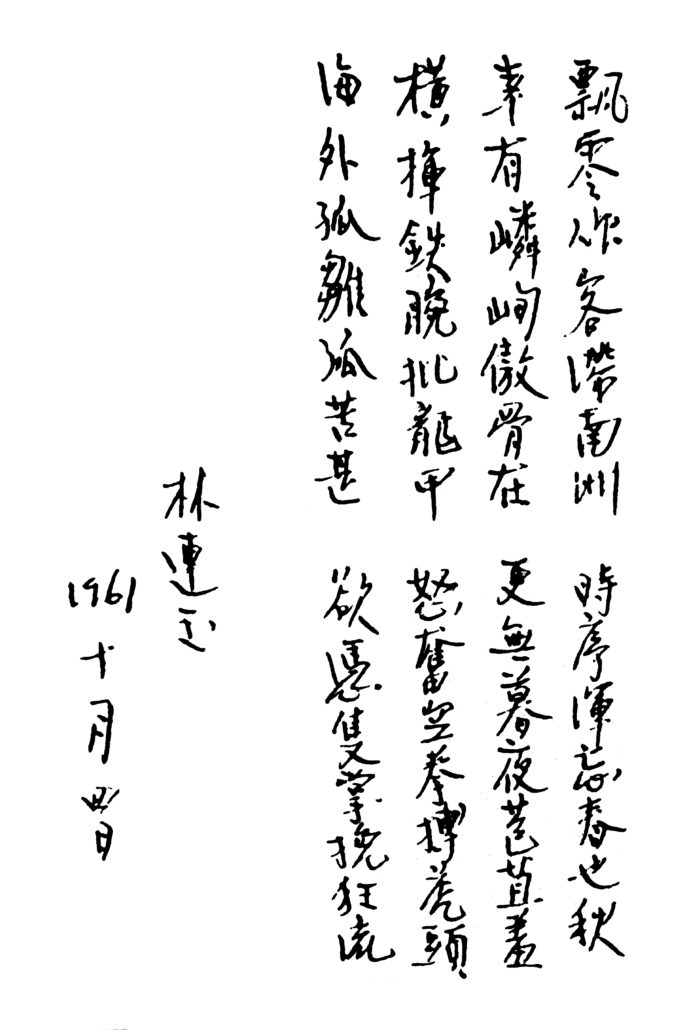 飄零作客滯南洲 時序渾忘春也秋
幸有嶙峋傲骨在 更無暮夜苞苴羞
橫揮鉄腕批龍甲 怒奮空拳搏虎頭
海外孤雛孤苦甚 欲憑隻掌挽狂流
林連玉
1961 十月 日